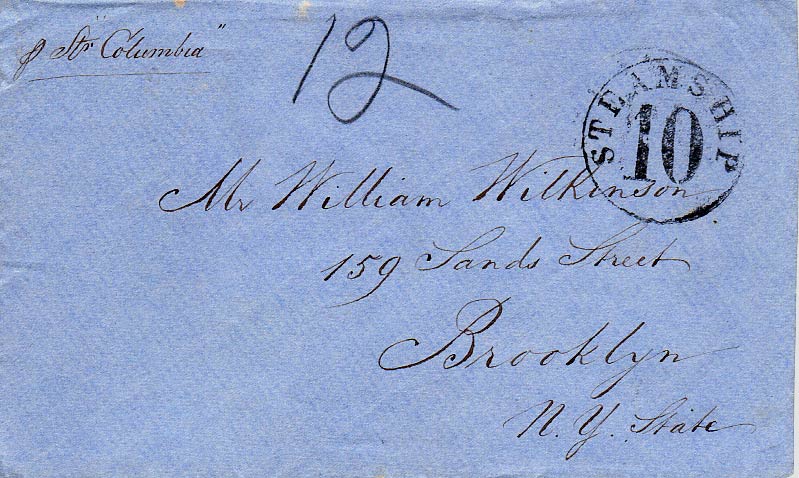 p Str "Columbia"
12
STEAMSHIP
10
Mr William Wilkinson
159 Sands Street
Brooklyn
N.Y. State